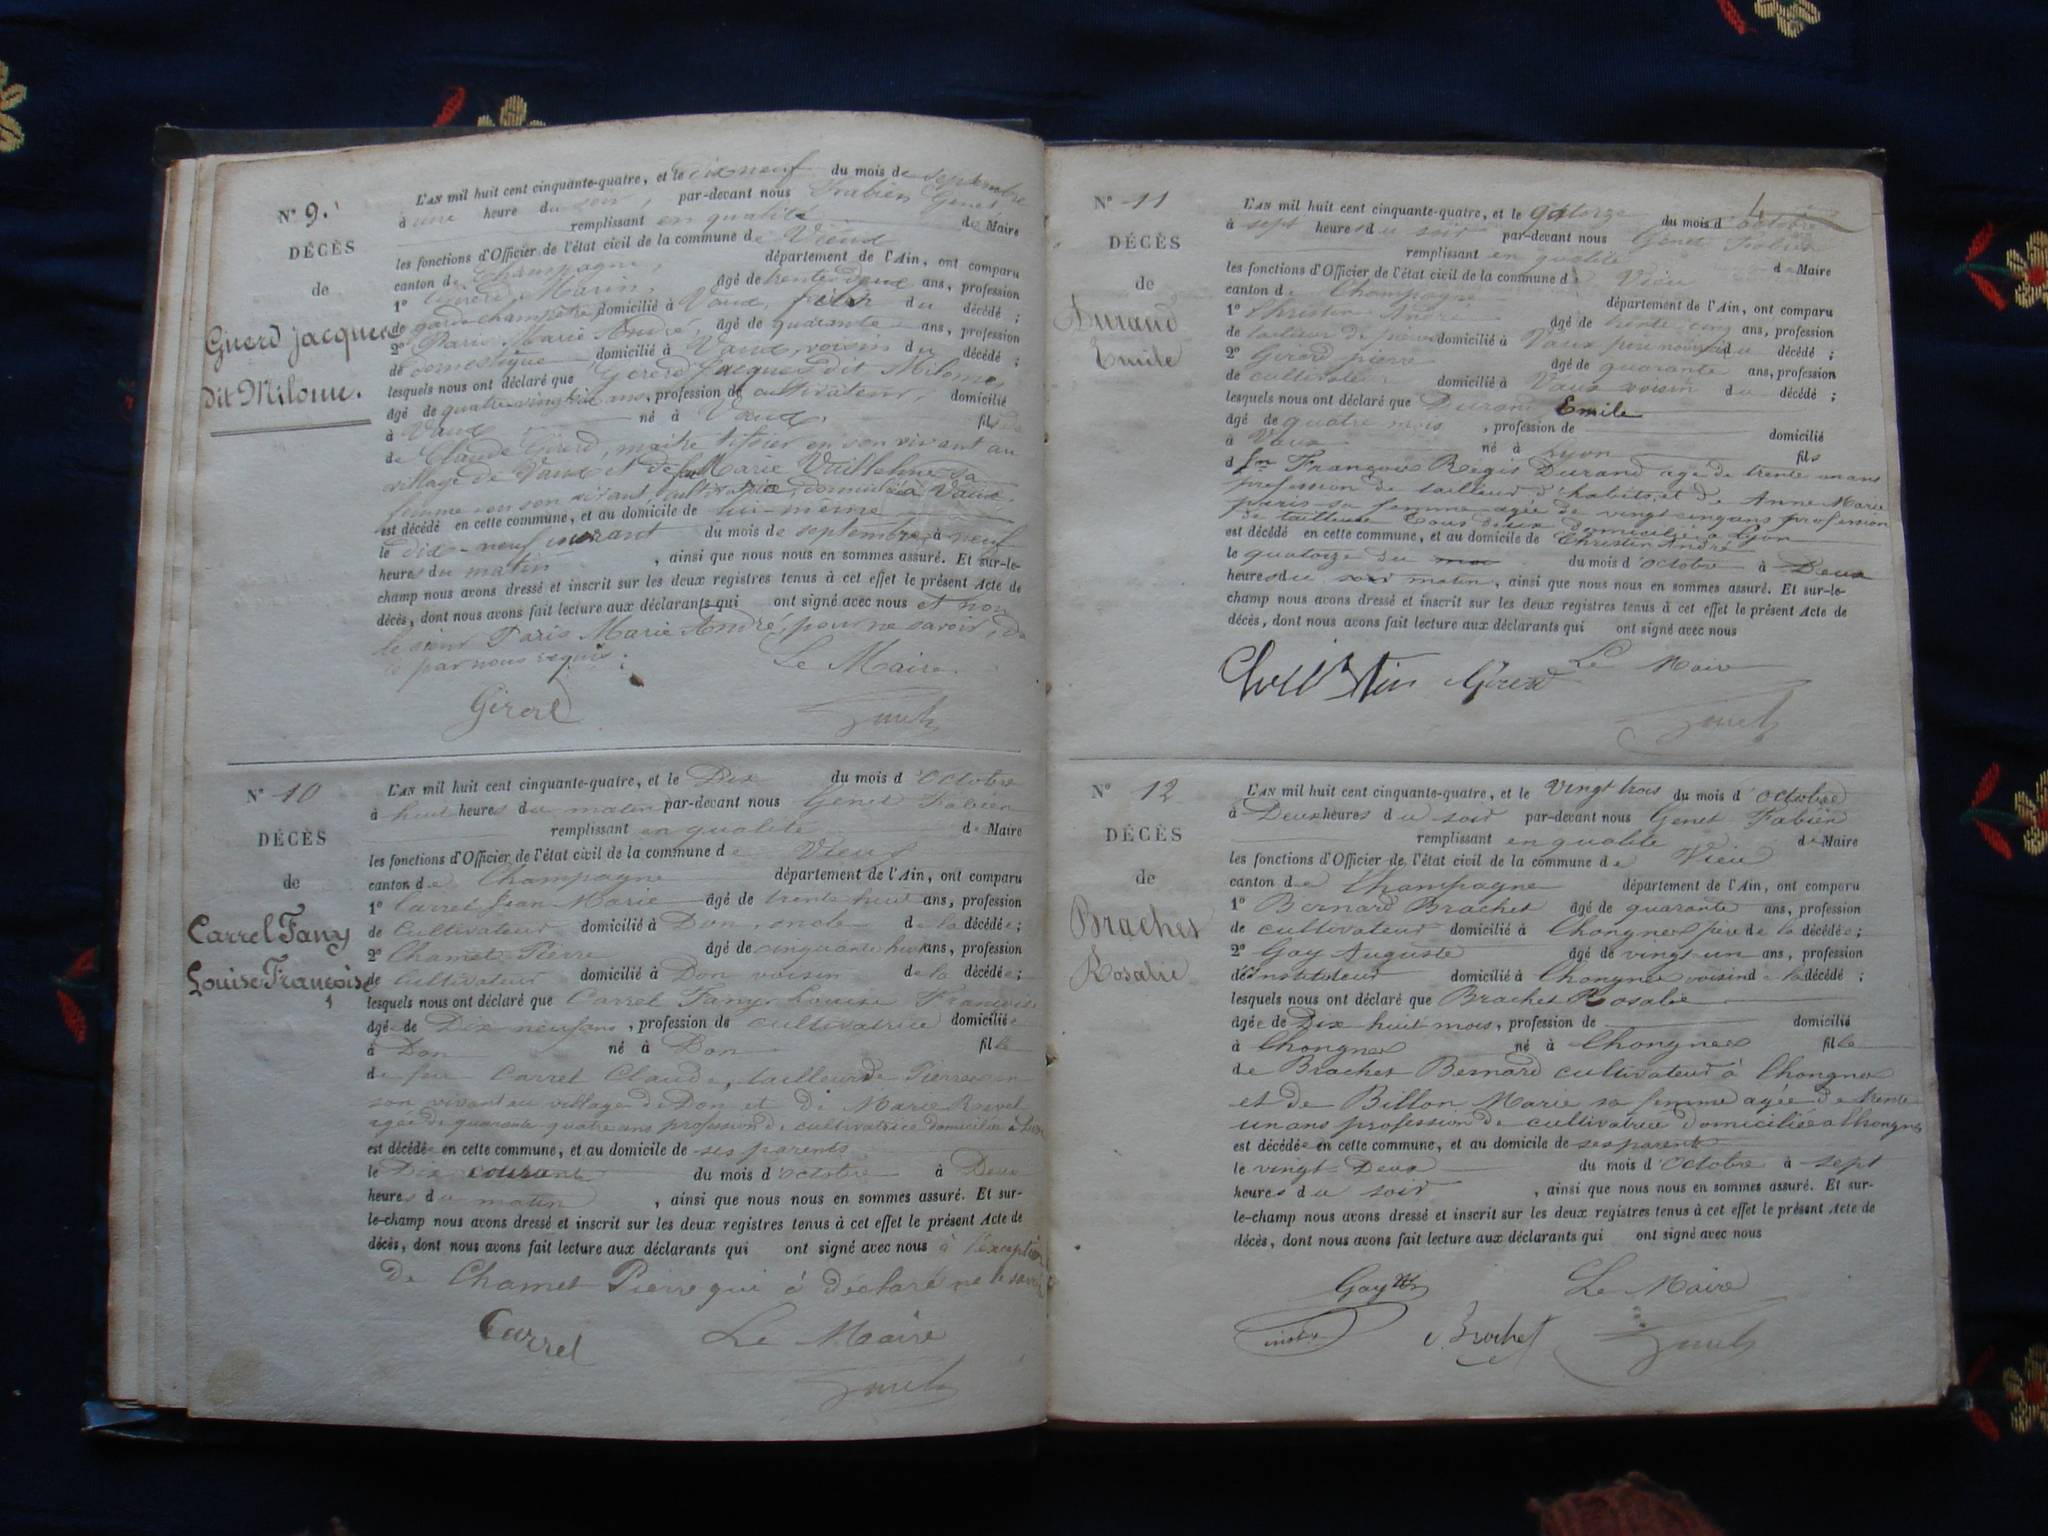 N° 9.
DÉCÈS
de
Girerd Jacques
dit Milome.
L'AN mil huit cent cinquante-quatre, et le dix neuf du mois de septembre
à une heure du soir, par-devant nous Fabien Genet,
remplissant en qualité de Maire
les fonctions d'Officier de l'état civil de la commune de Vieux
canton de Champagne, département de l'Ain, ont comparu
1° Girerd Marin, âgé de trente deux ans, profession
de garde champêtre domicilié à Vaux, du décédé ;
2° Paris Marie André, âgé de quarante ans, profession
de domestique domicilié à Vaux, voisin du décédé ;
lesquels nous ont déclaré que Girerd Jacques dit Milome,
âgé de quatre-vingt ans, profession de cultivateur, domicilié
à Vaux né à Vaux, fils
de Claude Girerd, maitre en son vivant au
village de Vaux et de feu Marie sa
femme en son vivant cultivatrice, domiciliée à Vaux,
est décédé en cette commune, et au domicile de lui-même
le dix-neuf courant du mois de septembre, à neuf
heures du matin, ainsi que nous nous en sommes assuré. Et sur-le-
champ nous avons dressé et inscrit sur les deux registres tenus à cet effet le présent Acte de
décès, dont nous avons fait lecture aux déclarants qui ont signé avec nous et non
le sieur Paris Marie André, pour ne savoir, de
ce par nous requis.
Le Maire.
Girerd Genet
N° 10
DÉCÈS
de
Carrel Fany
Louise Françoise
L'AN mil huit cent cinquante-quatre, et le Dix du mois d'octobre
à huit heures du matin par-devant nous Genet Fabien
remplissant en qualité de Maire
les fonctions d'Officier de l'état civil de la commune de Vieux
canton de Champagne département de l'Ain, ont comparu
1° Carrel Jean Marie âgé de trente huit ans, profession
de Cultivateur domicilié à Don, oncle de la décédée ;
2° Chamet Pierre âgé de cinquante huit ans, profession
de Cultivateur domicilié à Don voisin de la décédée ;
lesquels nous ont déclaré que Carrel Fany Louise Françoise
âgée de Dix neuf ans, profession de cultivatrice domiciliée
à Don né à Don fille
de feu Carrel Claude, tailleur de Pierres en
son vivant au village de Don et de Marie Revel
agée de quarante quatre ans profession de cultivatrice domiciliée à Don
est décédée en cette commune, et au domicile de ses parents
le Dix courant du mois d'octobre à Deux
heures du matin, ainsi que nous nous en sommes assuré. Et sur-
le-champ nous avons dressé et inscrit sur les deux registres tenus à cet effet le présent Acte de
décès, dont nous avons fait lecture aux déclarants qui ont signé avec nous à l'exception
de Chamet Pierre qui à déclaré ne le savoir
Carrel Le Maire
Genet
4
N° 11
DÉCÈS
de
Durand
Emile
L'AN mil huit cent cinquante-quatre, et le Qatorze du mois d'octobre
à sept heures du soir par-devant nous Genet Fabien
remplissant en qualité de Maire
les fonctions d'Officier de l'état civil de la commune de Vieu
canton de Champagne département de l'Ain, ont comparu
1° Christin André âgé de trente cinq ans, profession
de tailleur de pierre domicilié à Vaux père nourricier du décédé ;
2° Girerd pierre âgé de quarante ans, profession
de cultivateur domicilié à Vaux voisin du décédé ;
lesquels nous ont déclaré que Durand Emile
âgé de quatre mois, profession de domicilié
à Vaux né à Lyon fils
d François Régis Durand agé de trente un ans
profession de tailleur d'habits, et de Anne Marie
paris sa femme agée de vingt cinq ans profession
de tailleuse tous deux domiciliés à Lyon
est décédé en cette commune, et au domicile de Christin André
le quatorze du du mois d'octobre à Deux
heures du soir matin, ainsi que nous nous en sommes assuré. Et sur-le-
champ nous avons dressé et inscrit sur les deux registres tenus à cet effet le présent Acte de
décès, dont nous avons fait lecture aux déclarants qui ont signé avec nous
Christin Girerd Le Maire
Genet
N° 12
DÉCÈS
de
Brachet
Rosalie
L'AN mil huit cent cinquante-quatre, et le vingt trois du mois d'octobre
à Deux heures du soir par-devant nous Genet Fabien
remplissant en qualité de Maire
les fonctions d'Officier de l'état civil de la commune de Vieu
canton de Champagne département de l'Ain, ont comparu
1° Bernard Brachet âgé de quarante ans, profession
de cultivateur domicilié à Chongnes père de la décédée ;
2° Gay Auguste âgé de vingt-un ans, profession
d'instituteur domicilié à Chongnes voisin de la décédé ;
lesquels nous ont déclaré que Brachet Rosalie
âgée de Dix huit mois, profession de domicilié
à Chongnes né à Chongnes fille
de Brachet Bernard cultivateur à Chongnes
et de Billon Marie sa femme agée de trente
un ans profession de cultivatrice domiciliée à Chongnes
est décédée en cette commune, et au domicile de ses parents
le vingt-Deux du mois d'octobre à sept
heures du soir, ainsi que nous nous en sommes assuré. Et sur-
le-champ nous avons dressé et inscrit sur les deux registres tenus à cet effet le présent Acte de
décès, dont nous avons fait lecture aux déclarants qui ont signé avec nous
Gay Le Maire
Brachet Genet